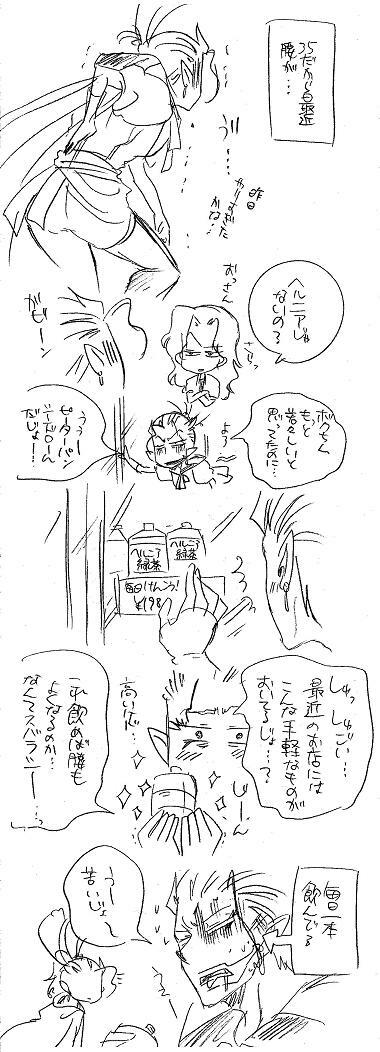 35だから自最近
腰が…
う"…
昨日
やりすぎた
かな…
ヘルニアじゃ
ないの？
おっさん
ガビーン
ボクもく
もっと
若々しいと
思ってたのに…
よう
うぅー
ピーターパン
だじょー…
ヘルニア
緑茶
ヘルニア
緑茶
毎日けんこう！
¥198
しゅっ しゅごい…
最近のお店には
こんな手軽なものが
おいてるじょ…？
じーん
高いケド…
これ飲めば腰も
よくなるのか…
なんてスバラシー…！
毎日一本
飲んでる
うー
苦いじょ〜